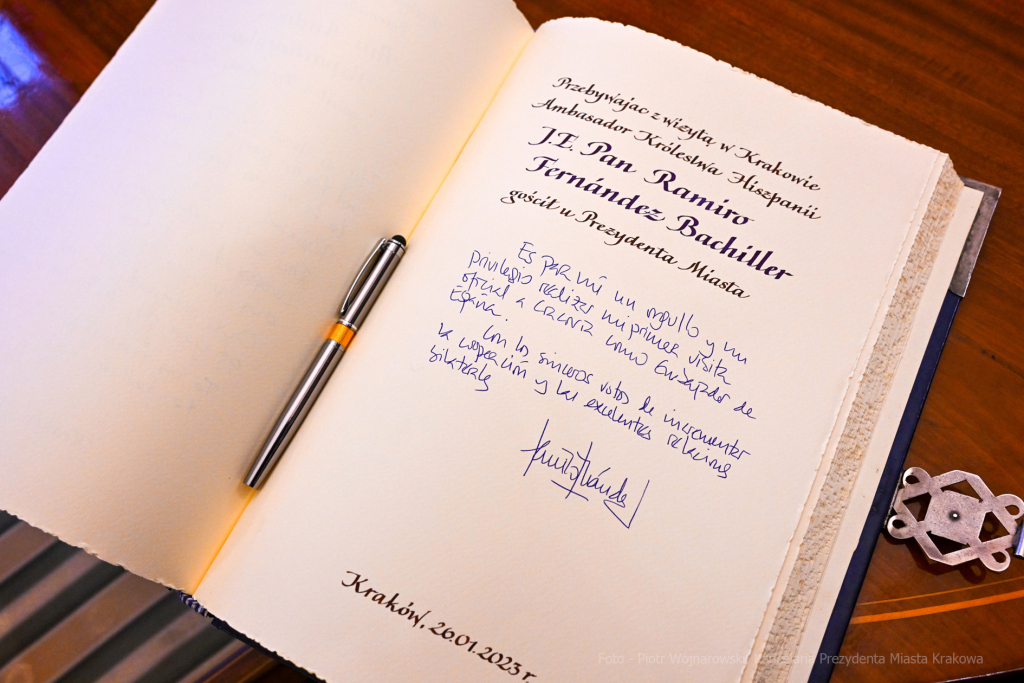 Przebywając z wizytą w Krakowie
Ambasador Królestwa Hiszpanii
J.E. Pan Ramiro
Fernández Bachiller
gościł u Prezydenta Miasta
Es para mí un orgullo y un
privilegio realizar mi primera visita
oficial a Cracovia como Embajador de
España.
Con los sinceros votos de incrementar
la cooperación y las excelentes relaciones
bilaterales
Kraków, 26.01.2023 r.
Foto - Piotr Wojnarowski Kancelaria Prezydenta Miasta Krakowa